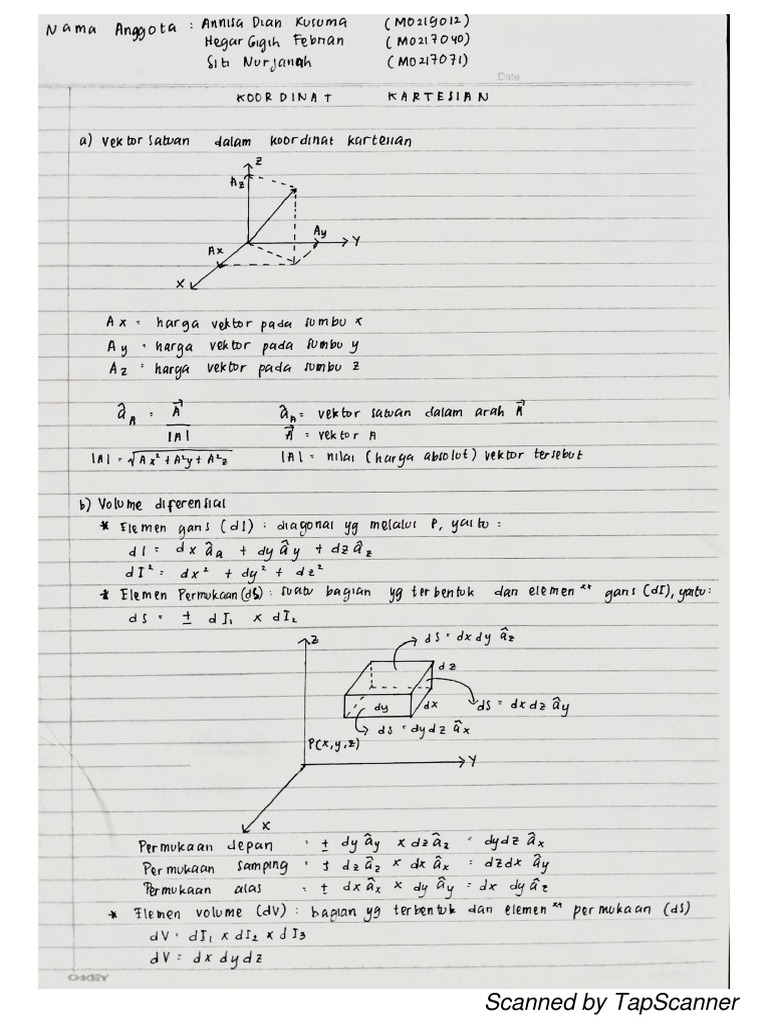 Nama Anggota : Annisa Dian Kusuma (M0219012)
Hegar Gigih Febrian (M0217040)
Siti Nurjanah (M0217071)
Date
KOORDINAT KARTESIAN
a) Vektor satuan dalam koordinat kartesian
Z
Az
Ay
Y
Ax
X
Ax = harga vektor pada sumbu x
Ay = harga vektor pada sumbu y
Az = harga vektor pada sumbu z
â_A = A⃗ / |A|
â_A = vektor satuan dalam arah A⃗
A⃗ = vektor A
|A| = √Ax² + A²y + A²z
|A| = nilai (harga absolut) vektor tersebut
b) Volume diferensial
* Elemen garis (dI) : diagonal yg melalui P, yaitu :
dI = dx â_a + dy â_y + dz â_z
dI² = dx² + dy² + dz²
* Elemen Permukaan (dS) : suatu bagian yg terbentuk dari elemen ** garis (dI), yaitu:
dS = ± dI₁ × dI₂
Z
dS = dx dy â_z
dz
dy
dx
dS = dx dz â_y
dS = dy dz â_x
P(x,y,z)
Y
X
Permukaan depan = ± dy â_y × dz â_z = dy dz â_x
Permukaan samping = ± dz â_z × dx â_x = dz dx â_y
Permukaan alas = ± dx â_x × dy â_y = dx dy â_z
* Elemen volume (dV) : bagian yg terbentuk dari elemen ** permukaan (dS)
dV = dI₁ × dI₂ × dI₃
dV = dx dy dz
Scanned by TapScanner